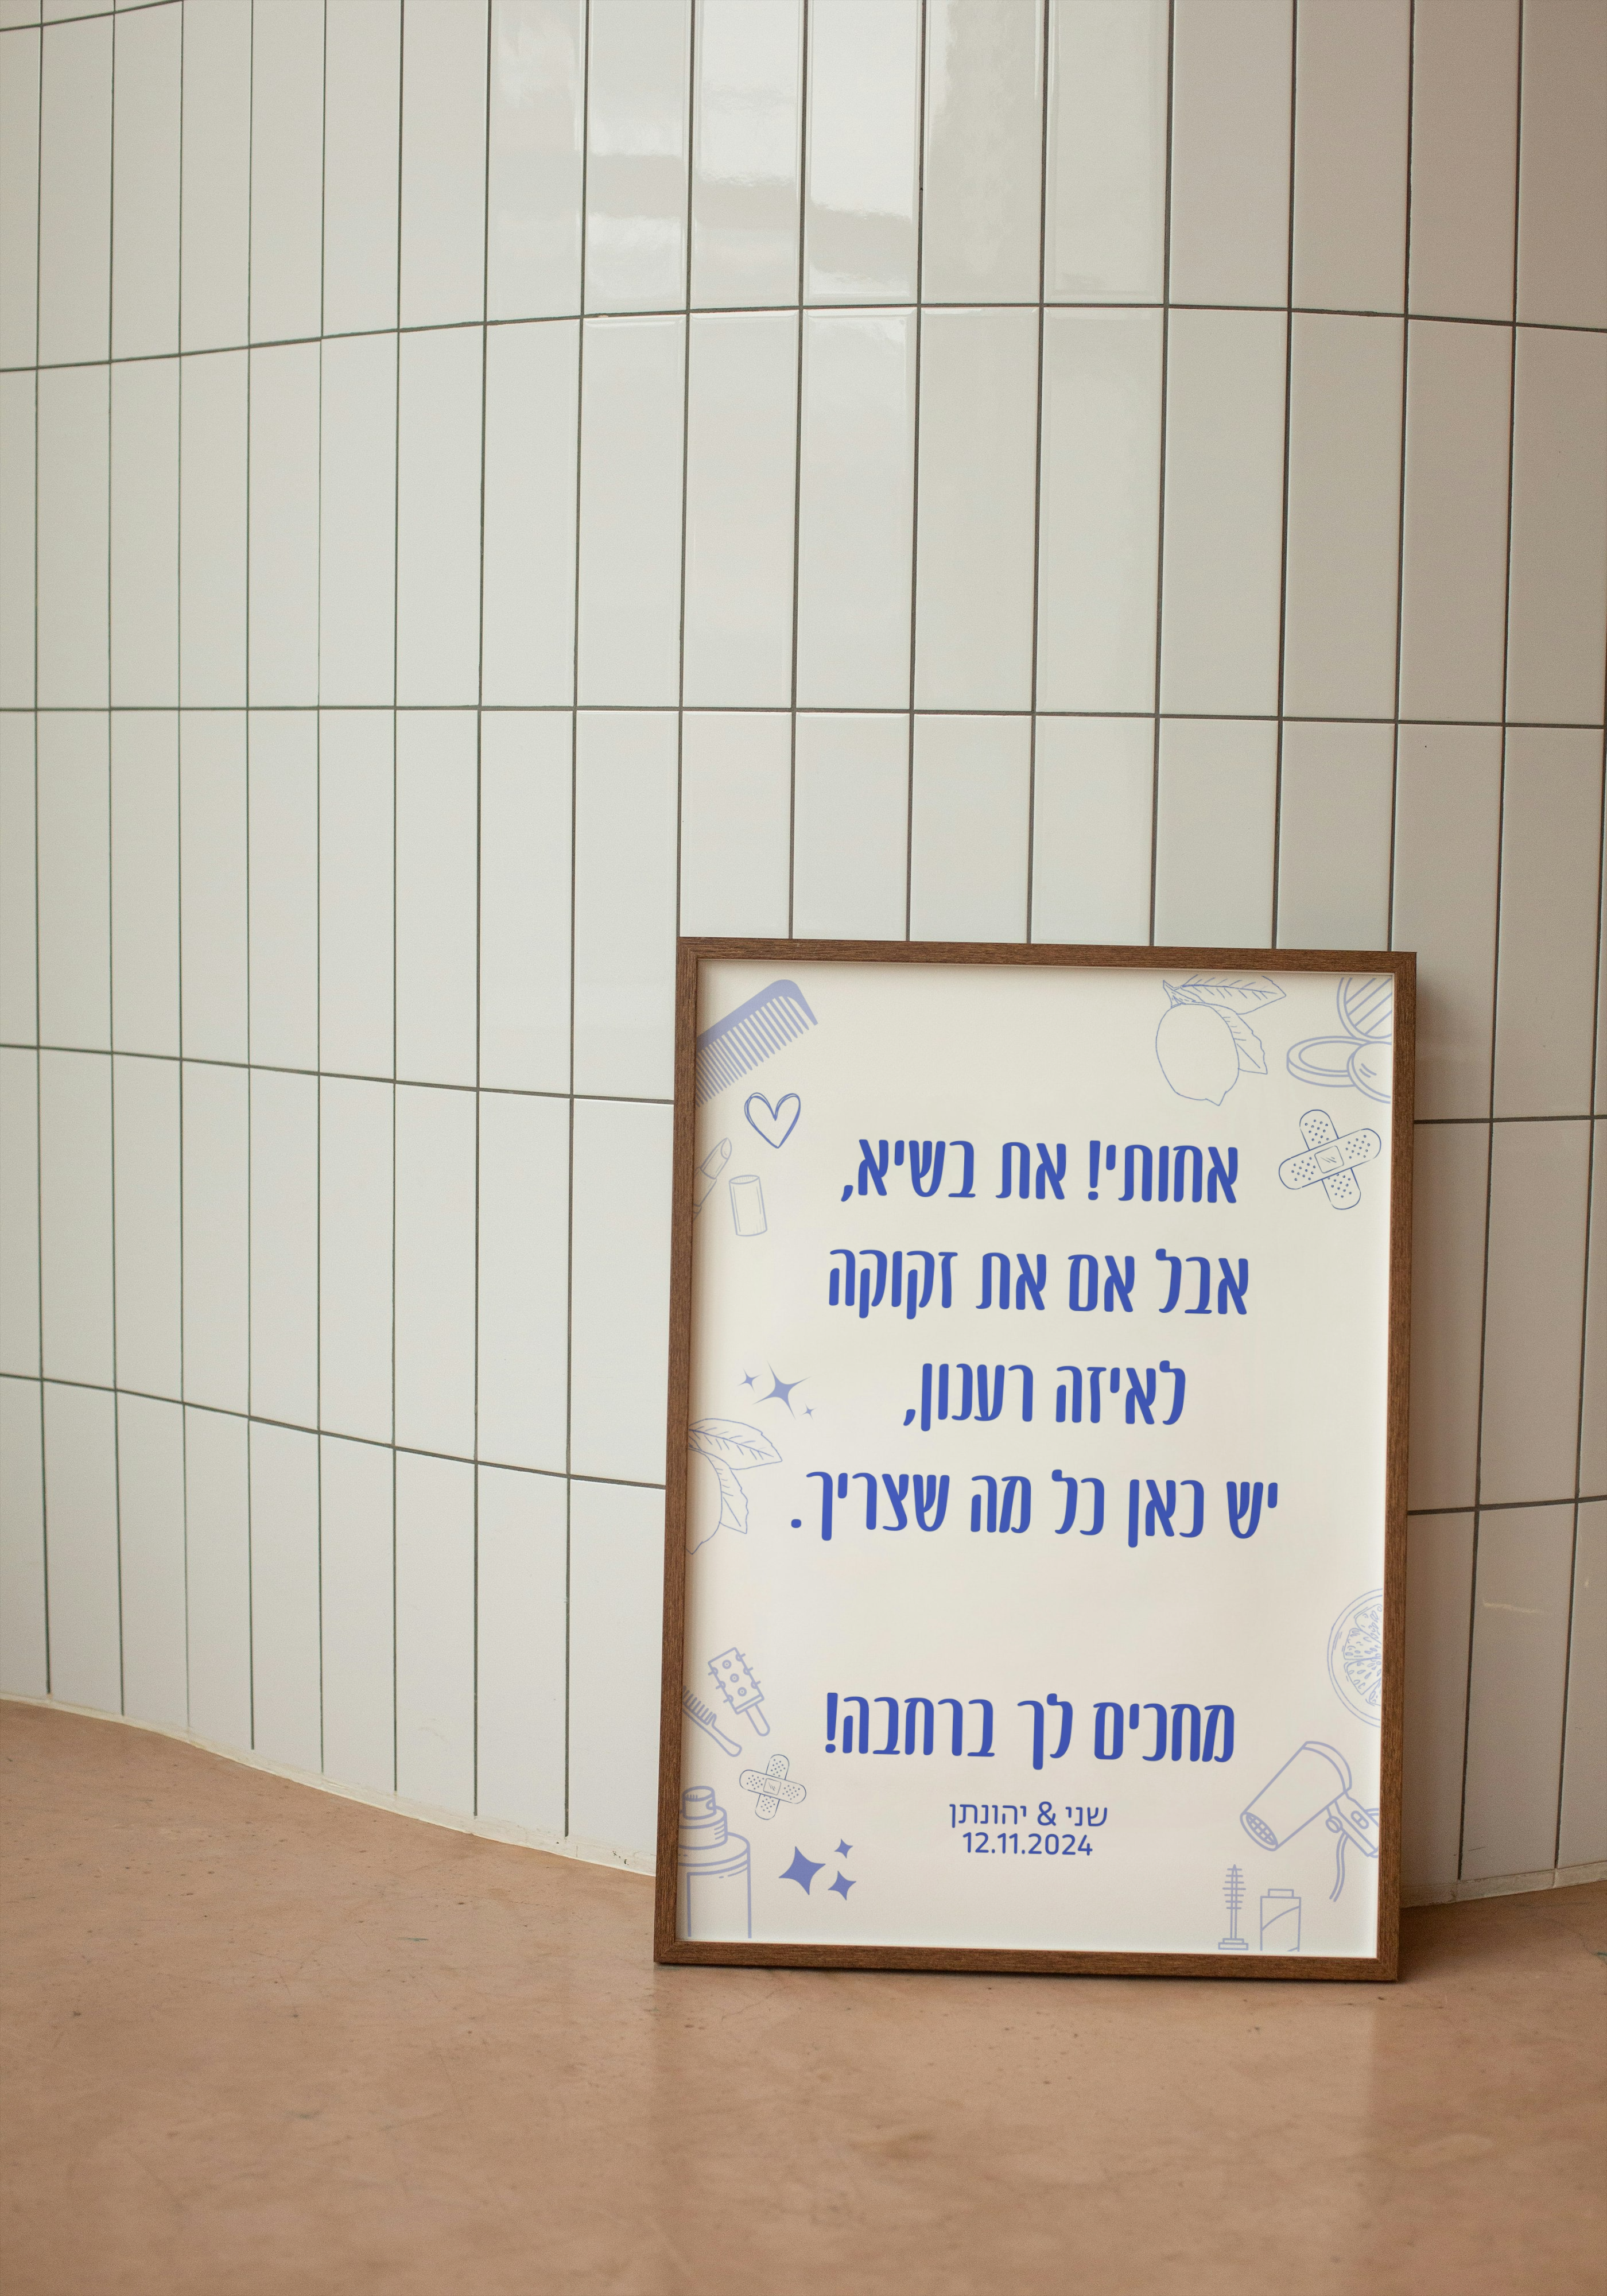 אחותי! את בשיא,
אבל אם את זקוקה
לאיזה רענון,
יש כאן כל מה שצריך.
מחכים לך ברחבה!
שני & יהונתן
12.11.2024